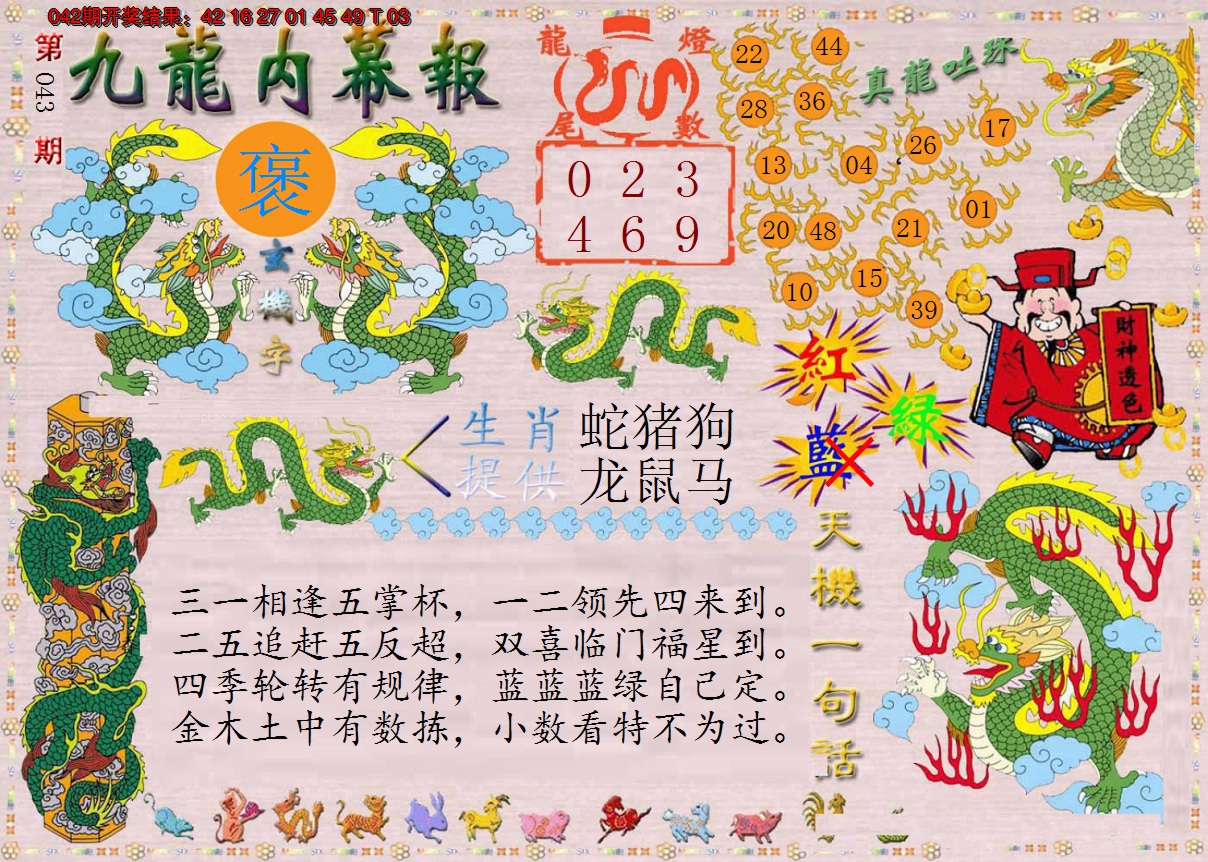 042期开奖结果：42 16 27 01 45 49 T 03
第043期
九龍内幕報
褒
玄機字
龍燈尾數
0 2 3
4 6 9
真龍吐珠
22
44
28
36
17
26
13
04
01
20
48
21
15
10
39
財神透色
紅
綠
藍
生肖提供
蛇猪狗
龙鼠马
天機一句話
三一相逢五掌杯，一二领先四来到。
二五追赶五反超，双喜临门福星到。
四季轮转有规律，蓝蓝蓝绿自己定。
金木土中有数拣，小数看特不为过。